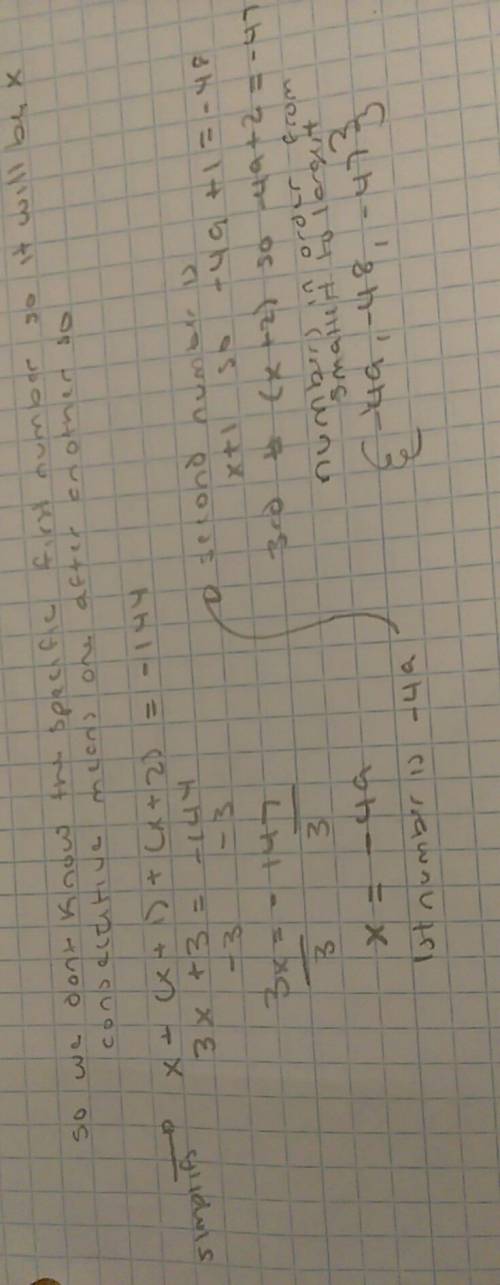 so we dont know the specific first number so it will be x
consecutive means one after another so
simplify x + (x + 1) + (x + 2) = -144
3x + 3 = -144
-3 -3
3x = -147
3 3
x = -49
1st number is -49
second number is
x+1 so -49 + 1 = -48
3rd is (x + 2) so -49 + 2 = -47
numbers in order from
smallest to largest
{-49, -48, -47}